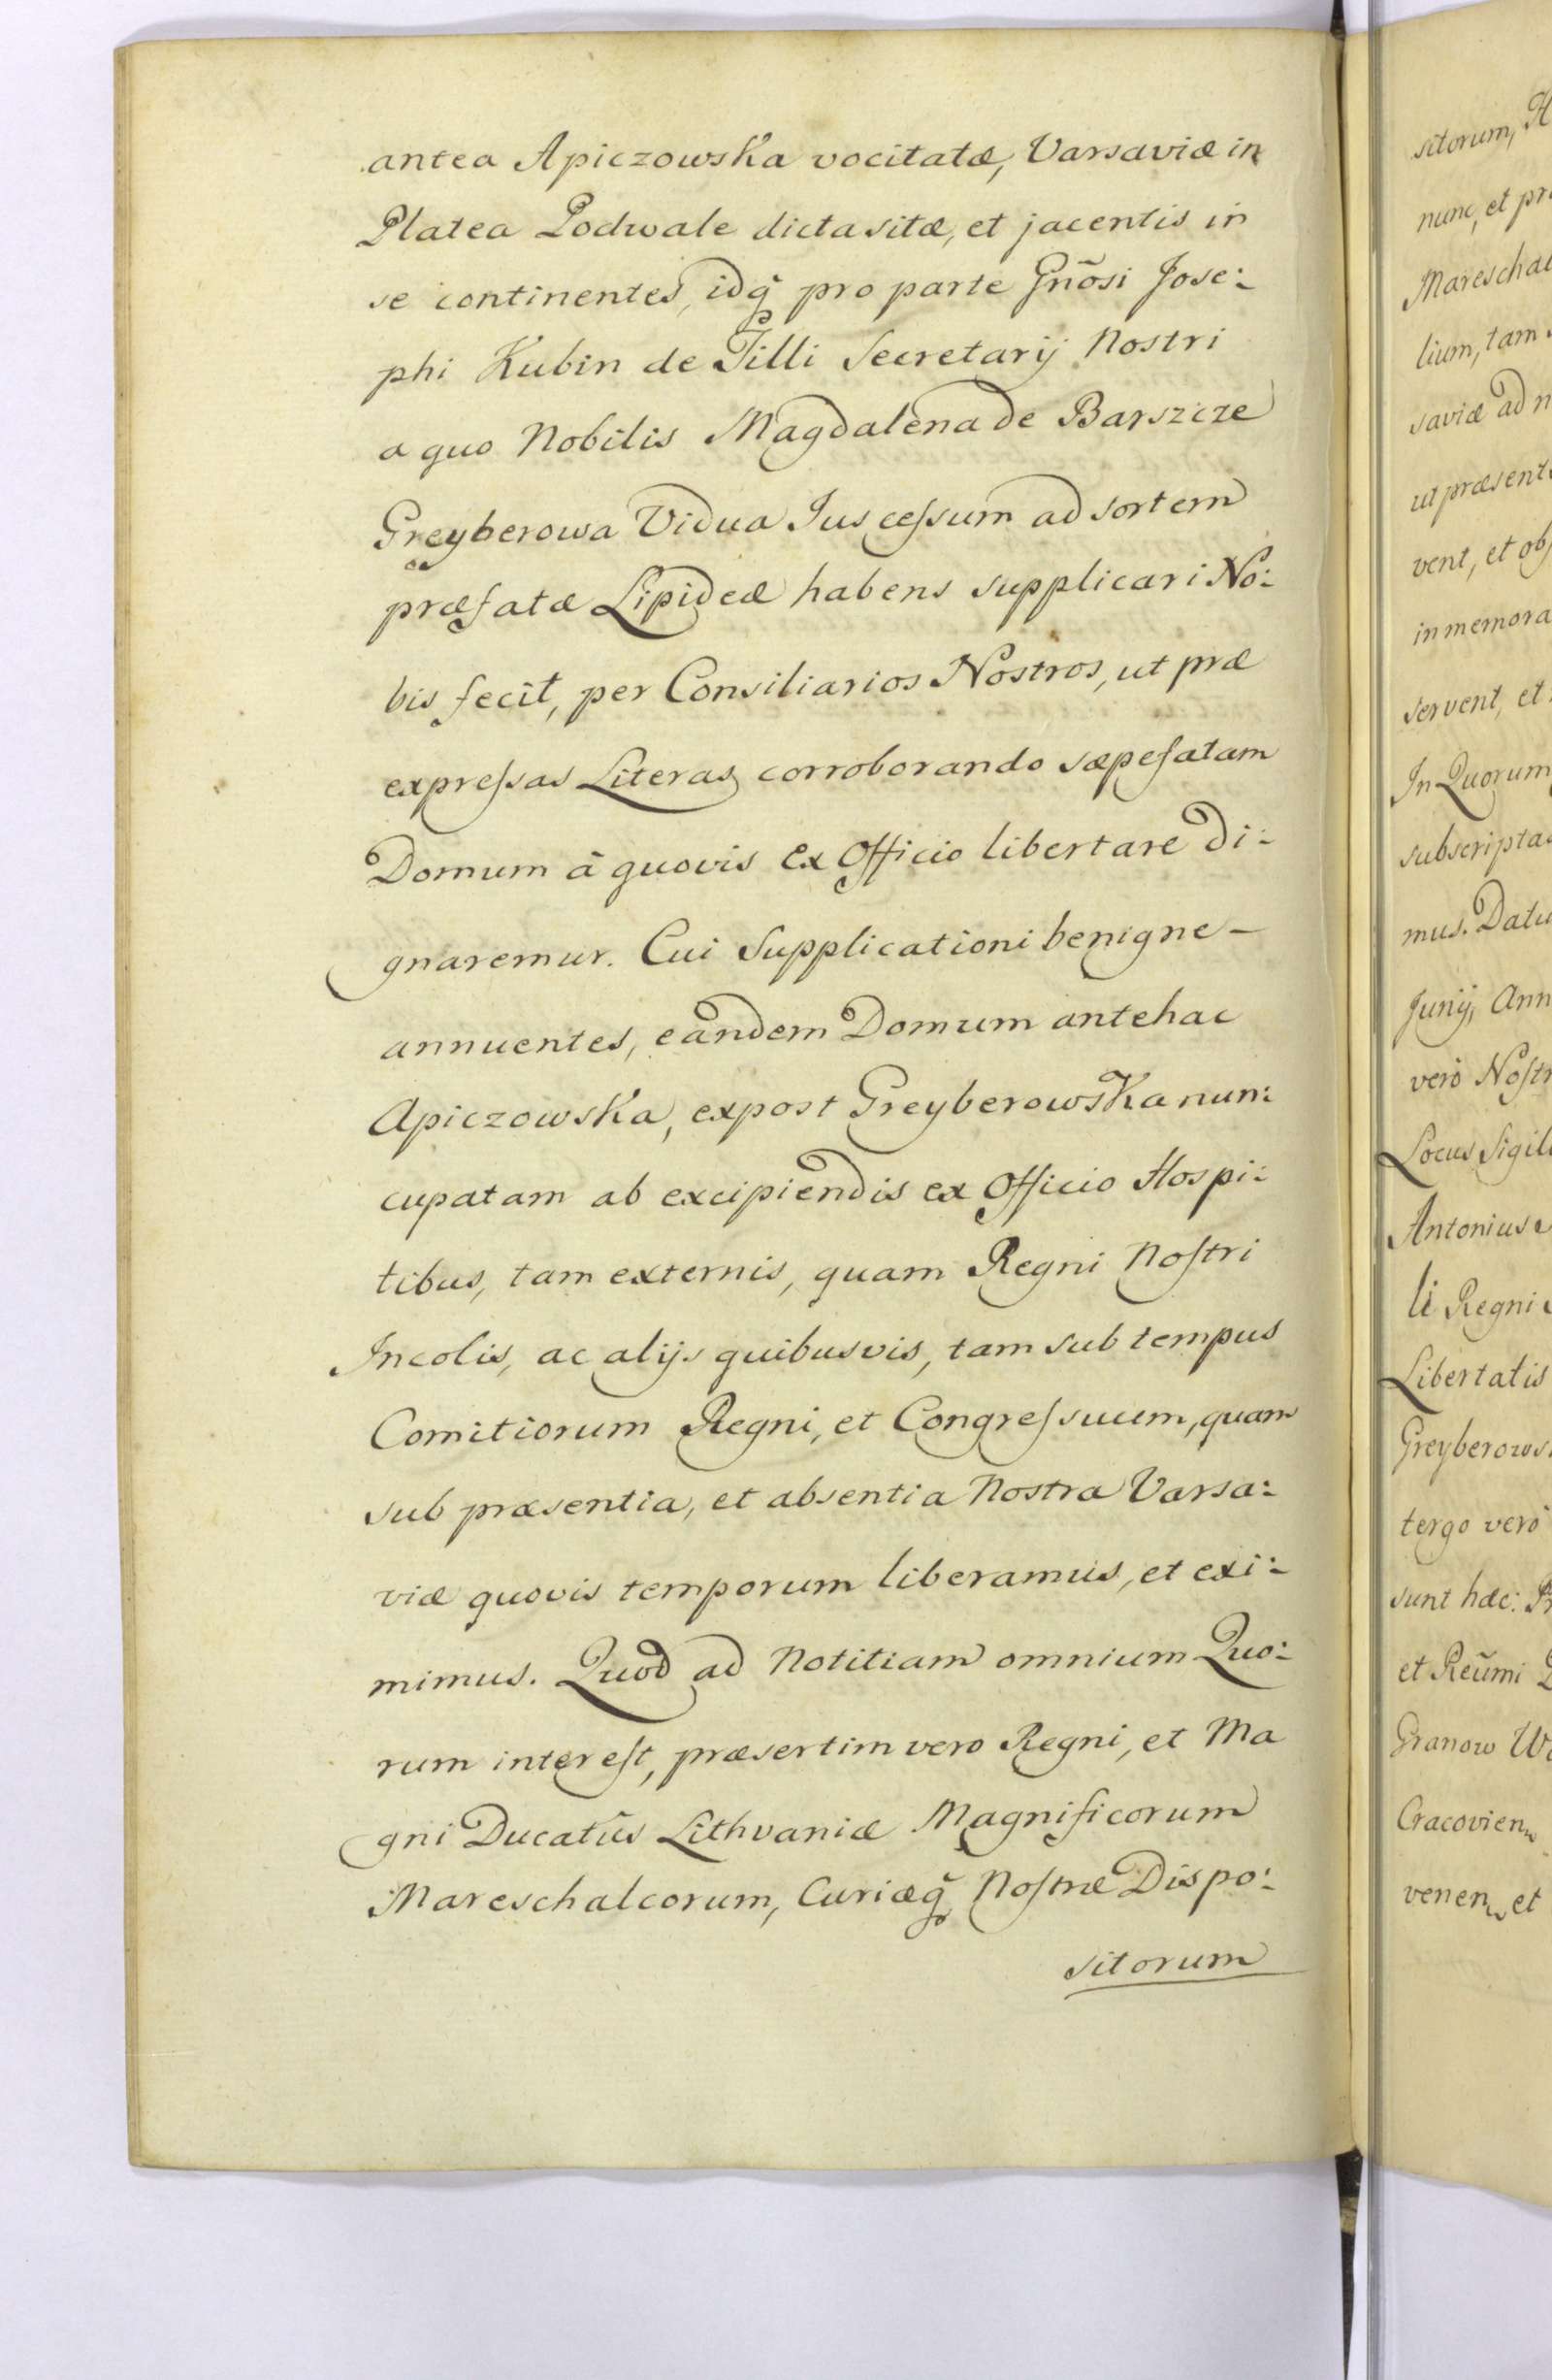 antea Apiczowska vocitatæ, Varsaviæ in
Platea Podwale dicta sitæ, et jacentis in
se continentes, idq̃ pro parte Gnõsi Jose:
phi Kubin de Tilli Secretarij Nostri
a quo Nobilis Magdalena de Barszcze
Greyberowa Vidua Jus ceſsum ad sortem
præfatæ Lipideæ habens supplicari No:
bis fecit, per Consiliarios Nostros, ut præ
expreſsas Literas corroborando sæpefatam
Domum â quovis ex Officio libertare di:
gnaremur. Cui Supplicationi benigne –
annuentes, eandem Domum antehac
Apiczowska, expost Greyberowska nun:
cupatam ab excipiendis ex Officio Hospi:
tibus, tam externis, quam Regni Noſtri
Incolis, ac alijs quibusvis, tam sub tempus
Comitiorum Regni, et Congreſsuum, quam
sub præsentia, et absentia Nostra Varsa:
viæ quovis temporum liberamus, et exi:
mimus. Quod ad Notitiam omnium Quo:
rum intereſt, præsertim vero Regni, et Ma
gni Ducatûs Lithvaniæ Magnificorum
Mareschalcorum, Curiæq̃ Noſtræ Dispo:
sitorum
sitorum, H
nunc, et pr
Mareschal
lium, tam
saviæ ad n
ut præsent
vent, et obſ
in memora
servent, et
In Quorum
subscripta
mus. Datu
Junij, Ann
verò Noſtr
Locus Sigil
Antonius
li Regni
Libertatis
Greyberows
tergo verò
sunt hæc: Pr
et Reũmi
Granow W
Cracovien
venen et